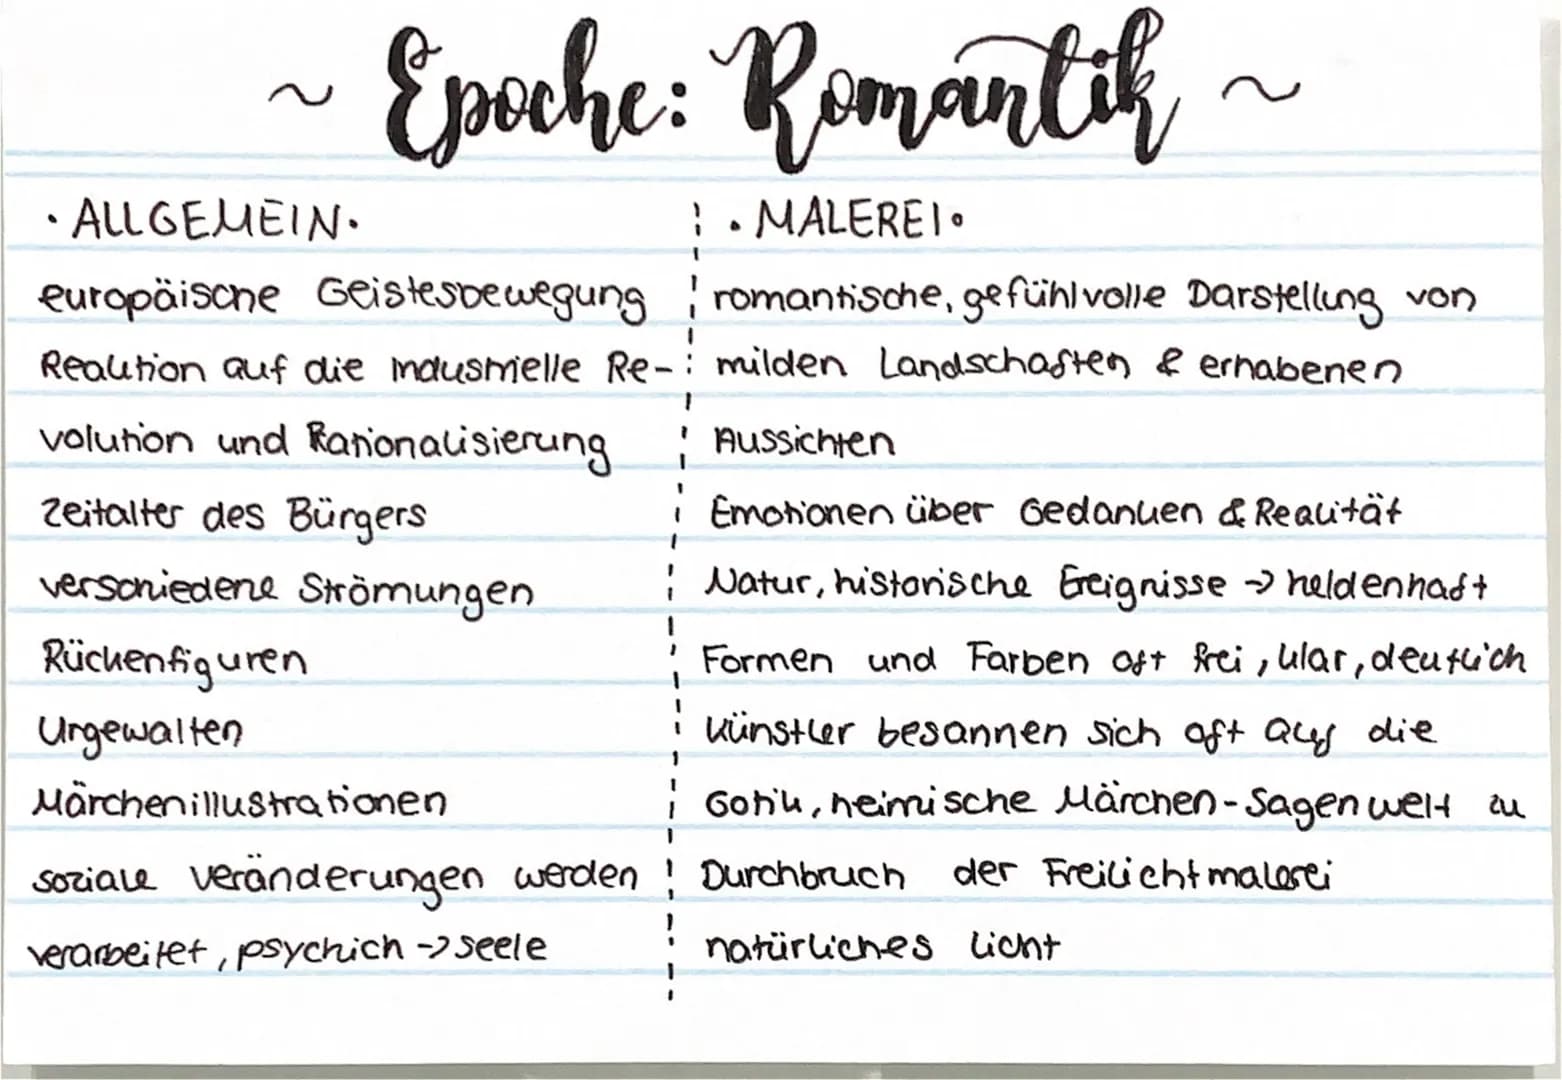 ~ Epoche: Romantik ~
· ALLGEMEIN ·
europäische Geistesbewegung
Reaktion auf die industrielle Re-
volution und Rationalisierung
Zeitalter des Bürgers
verschiedene Strömungen
Rückenfiguren
Urgewalten
Märchenillustrationen
soziale Veränderungen werden
verarbeitet, psychich -> Seele
· MALEREI ·
romantische, gefühlvolle Darstellung von
milden Landschaften & erhabenen
Aussichten
Emotionen über Gedanken & Realität
Natur, historische Ereignisse -> heldenhaft
Formen und Farben oft frei, klar, deutlich
Künstler besannen sich oft auf die
Gotik, heimische Märchen-Sagenwelt zu
Durchbruch der Freilichtmalerei
natürliches Licht